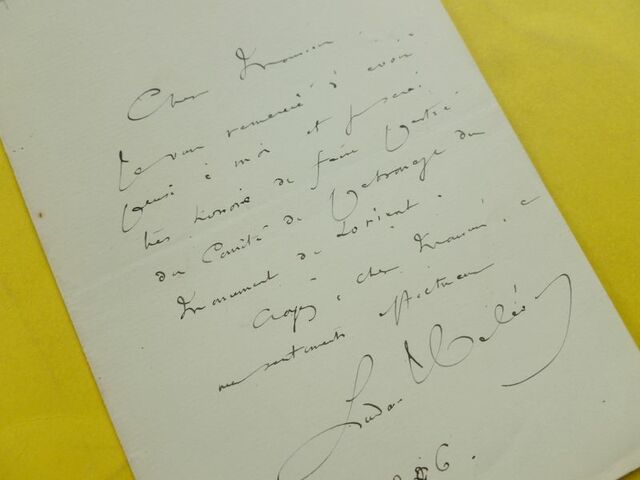 Cher Monsieur
Je vous remercie d'avoir
pensé à moi et je serai
très honoré de faire partie
du Comité de Patronage du
Monument de Lorient.
Croyez, cher Monsieur, à
mes sentiments
Ludovic Halévy